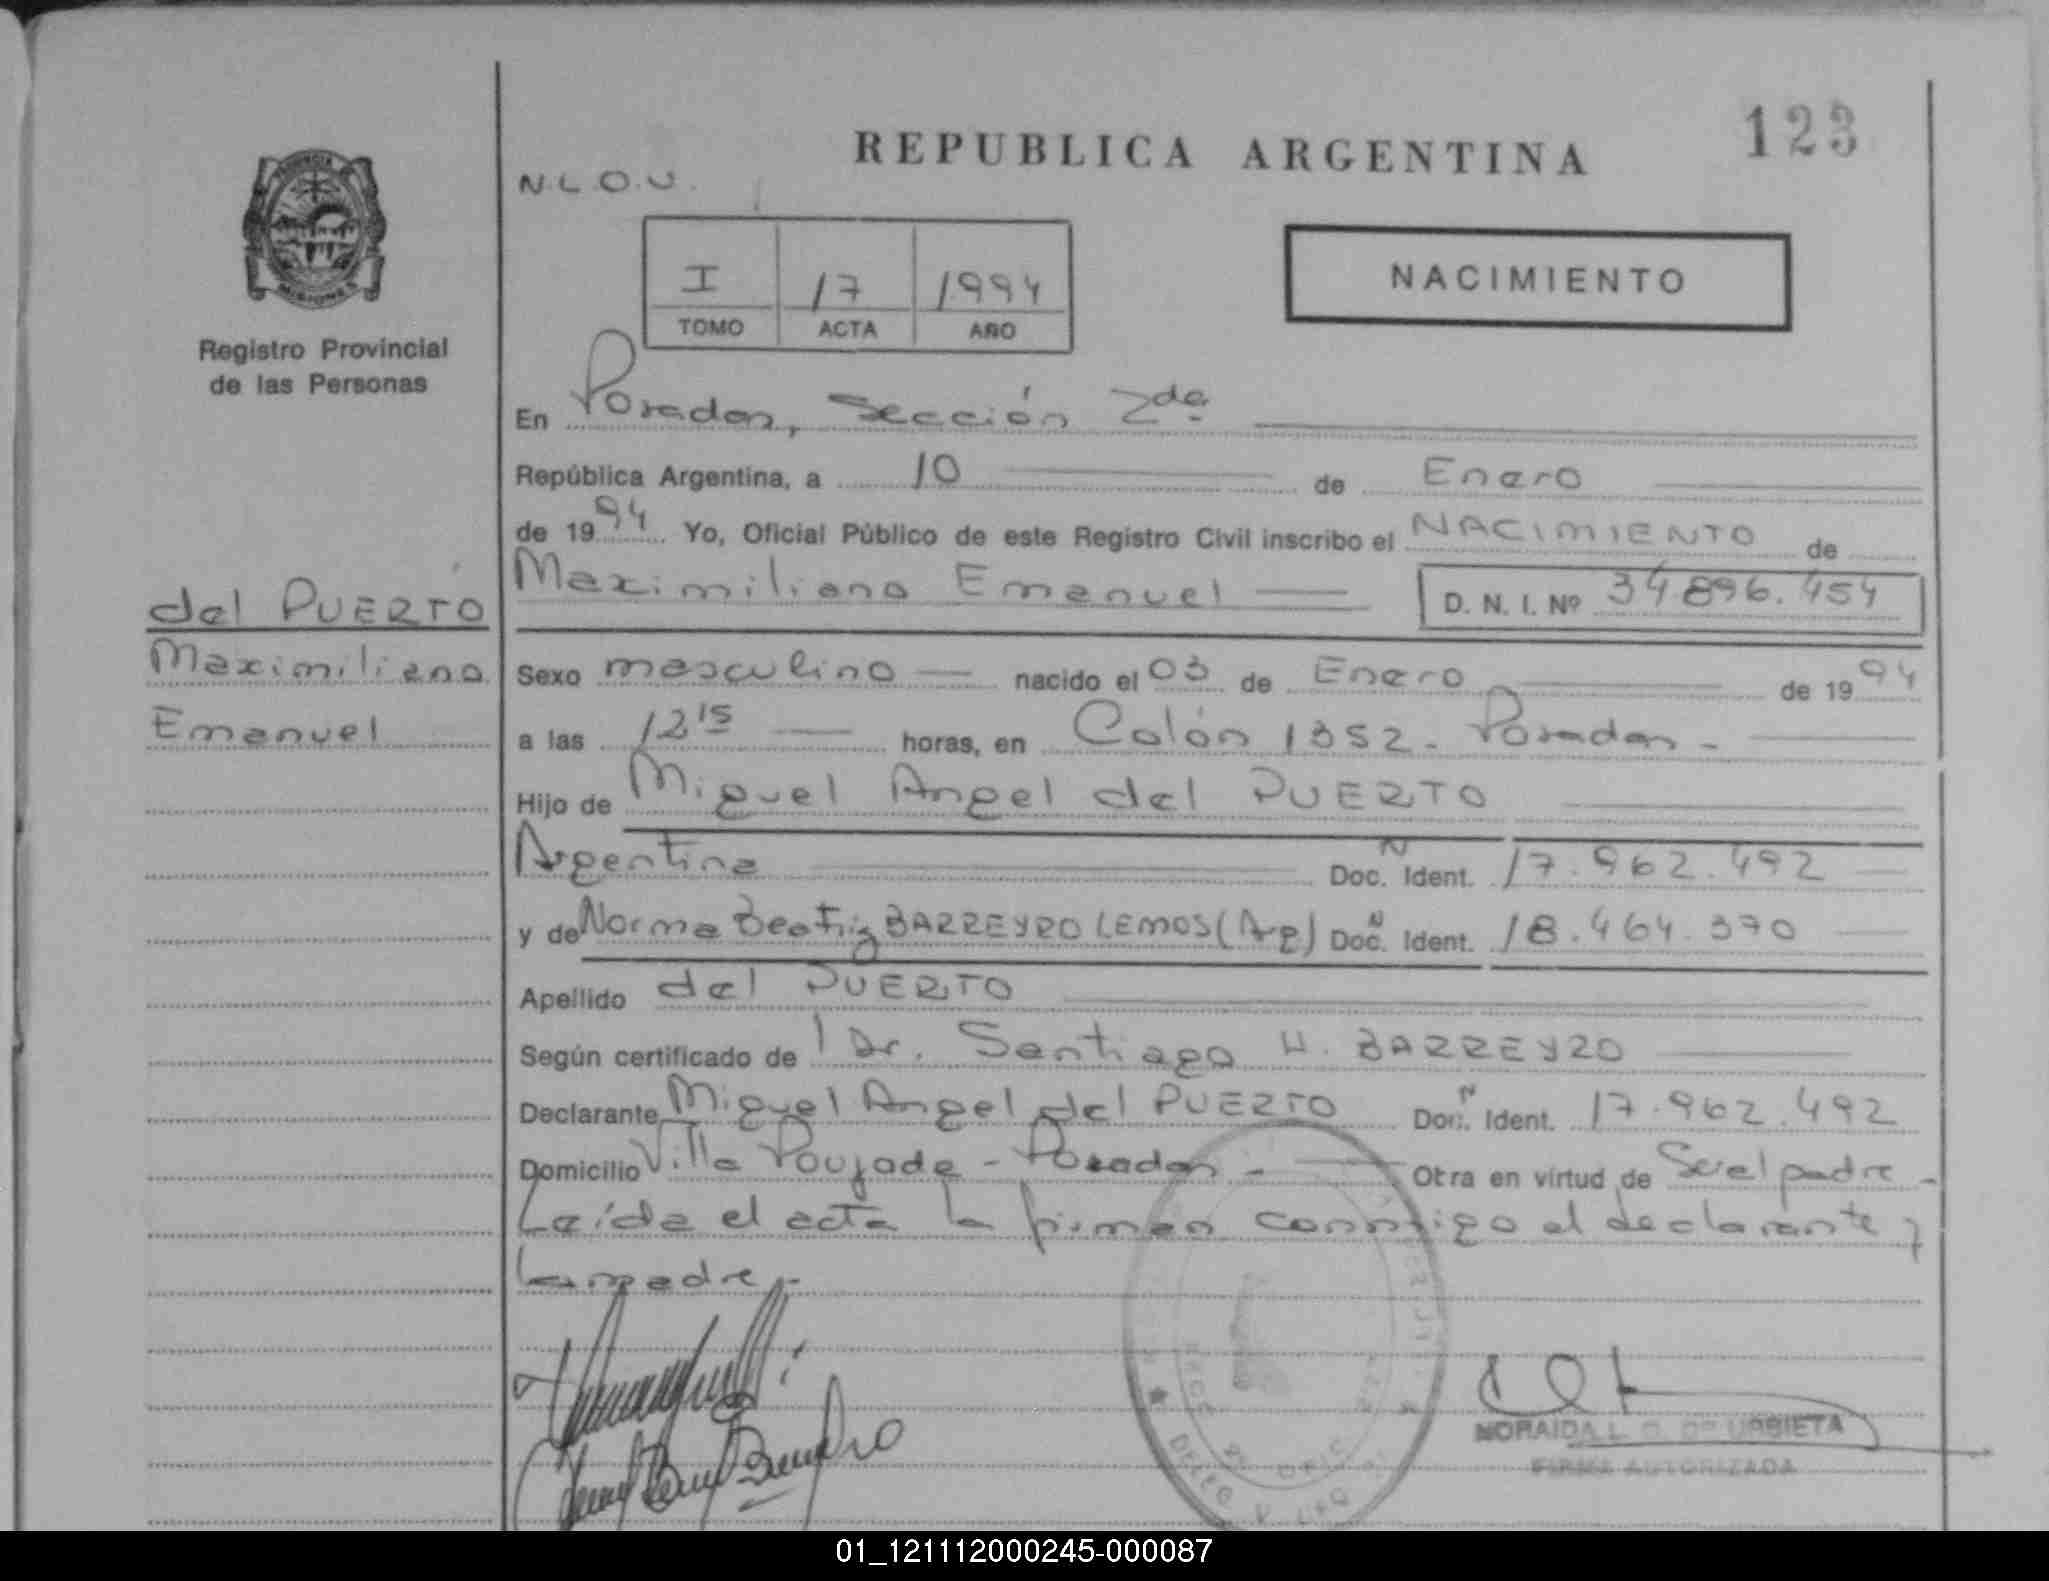 123
REPUBLICA ARGENTINA
N.L.O.U.
PROVINCIA
MISIONES
Registro Provincial
de las Personas
I 17 1994
TOMO ACTA AÑO
NACIMIENTO
En Posadas, Sección 2da
República Argentina, a 10 de Enero
de 1994 Yo, Oficial Público de este Registro Civil inscribo el NACIMIENTO de
Maximiliano Emanuel D. N. I. Nº 34.896.454
del PUERTO
Maximiliano
Emanuel
Sexo masculino nacido el 03 de Enero de 1994
a las 12 15 horas, en Colón 1352 - Posadas -
Hijo de Miguel Angel del PUERTO
Argentina Doc. N Ident. 17.962.492
y de Norma Beatriz BARREYRO LEMOS (Arg) Doc. N Ident. 18.464.370
Apellido del PUERTO
Según certificado de Dr. Santiago H. BARREYRO
Declarante Miguel Angel del PUERTO Doc. N Ident. 17.962.492
Domicilio Villa Poujade - Posadas - Otra en virtud de Ser el padre -
Leída el acta la firman conmigo el declarante y
la madre.-
NORAIDA L. O. DE URBIETA
FIRMA AUTORIZADA
01_121112000245-000087